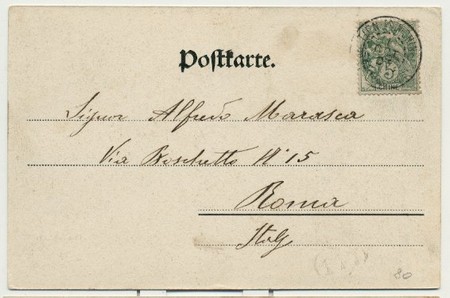 Postkarte.
Signor Alfredo Marasca
Via Boschetto N° 15
Roma
Italy
80